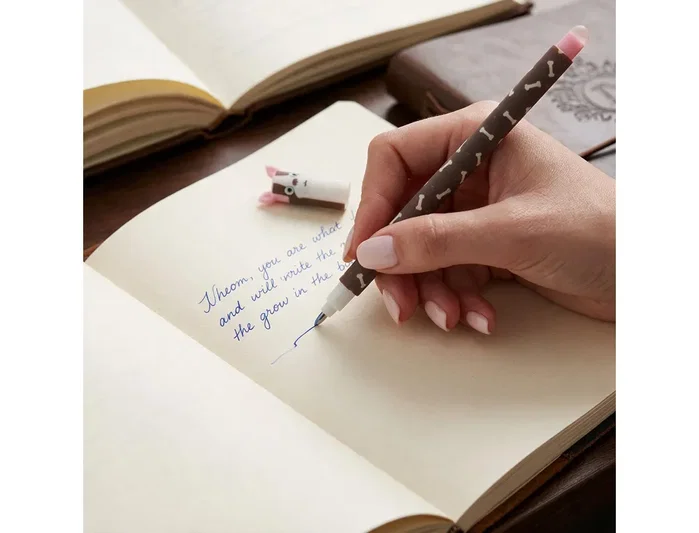 Nheom, you are what
and will write the
the grow in the